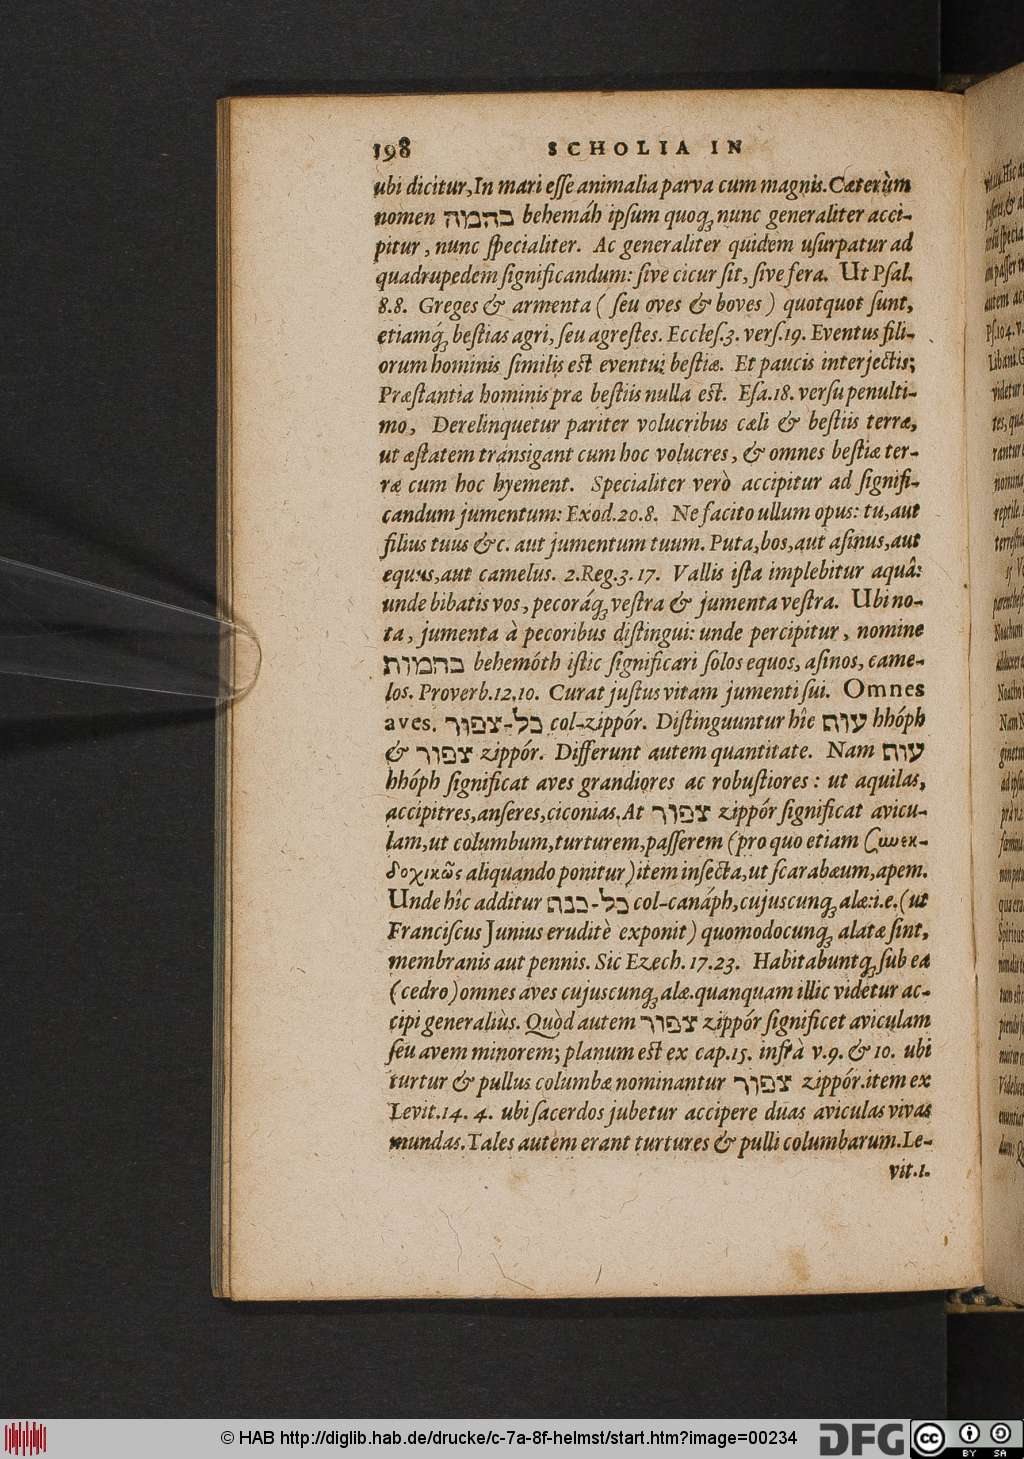 198 SCHOLIA IN
ubi dicitur, In mari eſſe animalia parva cum magnis. Cæterùm
nomen בהמה behemáh ipſum quoq; nunc generaliter acci-
pitur, nunc ſpecialiter. Ac generaliter quidem uſurpatur ad
quadrupedem ſignificandum: ſive cicur ſit, ſive fera. Ut Pſal.
8.8. Greges & armenta (ſeu oves & boves) quotquot ſunt,
etiamq́; beſtias agri, ſeu agreſtes. Eccleſ.3. verſ.19. Eventus fili-
orum hominis ſimilis eſt eventui beſtiæ. Et paucis interjectis;
Præſtantia hominis præ beſtiis nulla eſt. Eſa.18. verſu penulti-
mo, Derelinquetur pariter volucribus cæli & beſtiis terræ,
ut æſtatem tranſigant cum hoc volucres, & omnes beſtiæ ter-
ræ cum hoc hyement. Specialiter verò accipitur ad ſignifi-
candum jumentum: Exod.20.8. Ne facito ullum opus: tu, aut
filius tuus &c. aut jumentum tuum. Puta, bos, aut aſinus, aut
equus, aut camelus. 2.Reg.3.17. Vallis iſta implebitur aquâ:
unde bibatis vos, pecoráq; veſtra & jumenta veſtra. Ubi no-
ta, jumenta à pecoribus diſtingui: unde percipitur, nomine
בהמות behemóth iſtic ſignificari ſolos equos, aſinos, came-
los. Proverb.12.10. Curat juſtus vitam jumenti ſui. Omnes
aves. כל-צפור col-zippór. Diſtinguuntur hîc עוף hhóph
& צפור zippór. Differunt autem quantitate. Nam עוף
hhóph ſignificat aves grandiores ac robuſtiores: ut aquilas,
accipitres, anſeres, ciconias. At צפור zippór ſignificat avicu-
lam, ut columbum, turturem, paſſerem (pro quo etiam ζωεκ-
δοχικῶς aliquando ponitur) item inſecta, ut ſcarabæum, apem.
Unde hîc additur כל-כנף col-canáph, cujuscunq; alæ: i.e. (ut
Franciſcus Junius eruditè exponit) quomodocunq; alatæ ſint,
membranis aut pennis. Sic Ezech.17.23. Habitabuntq; ſub ea
(cedro) omnes aves cujuscunq; alæ. quanquam illic videtur ac-
cipi generaliùs. Quòd autem צפור zippór ſignificet aviculam
ſeu avem minorem; planum eſt ex cap.15. infrà v.9. & 10. ubi
turtur & pullus columbæ nominantur צפור zippór. item ex
Levit.14.4. ubi ſacerdos jubetur accipere duas aviculas vivas
mundas. Tales autem erant turtures & pulli columbarum. Le-
vit.1.
© HAB http://diglib.hab.de/drucke/c-7a-8f-helmst/start.htm?image=00234
DFG
cc BY SA